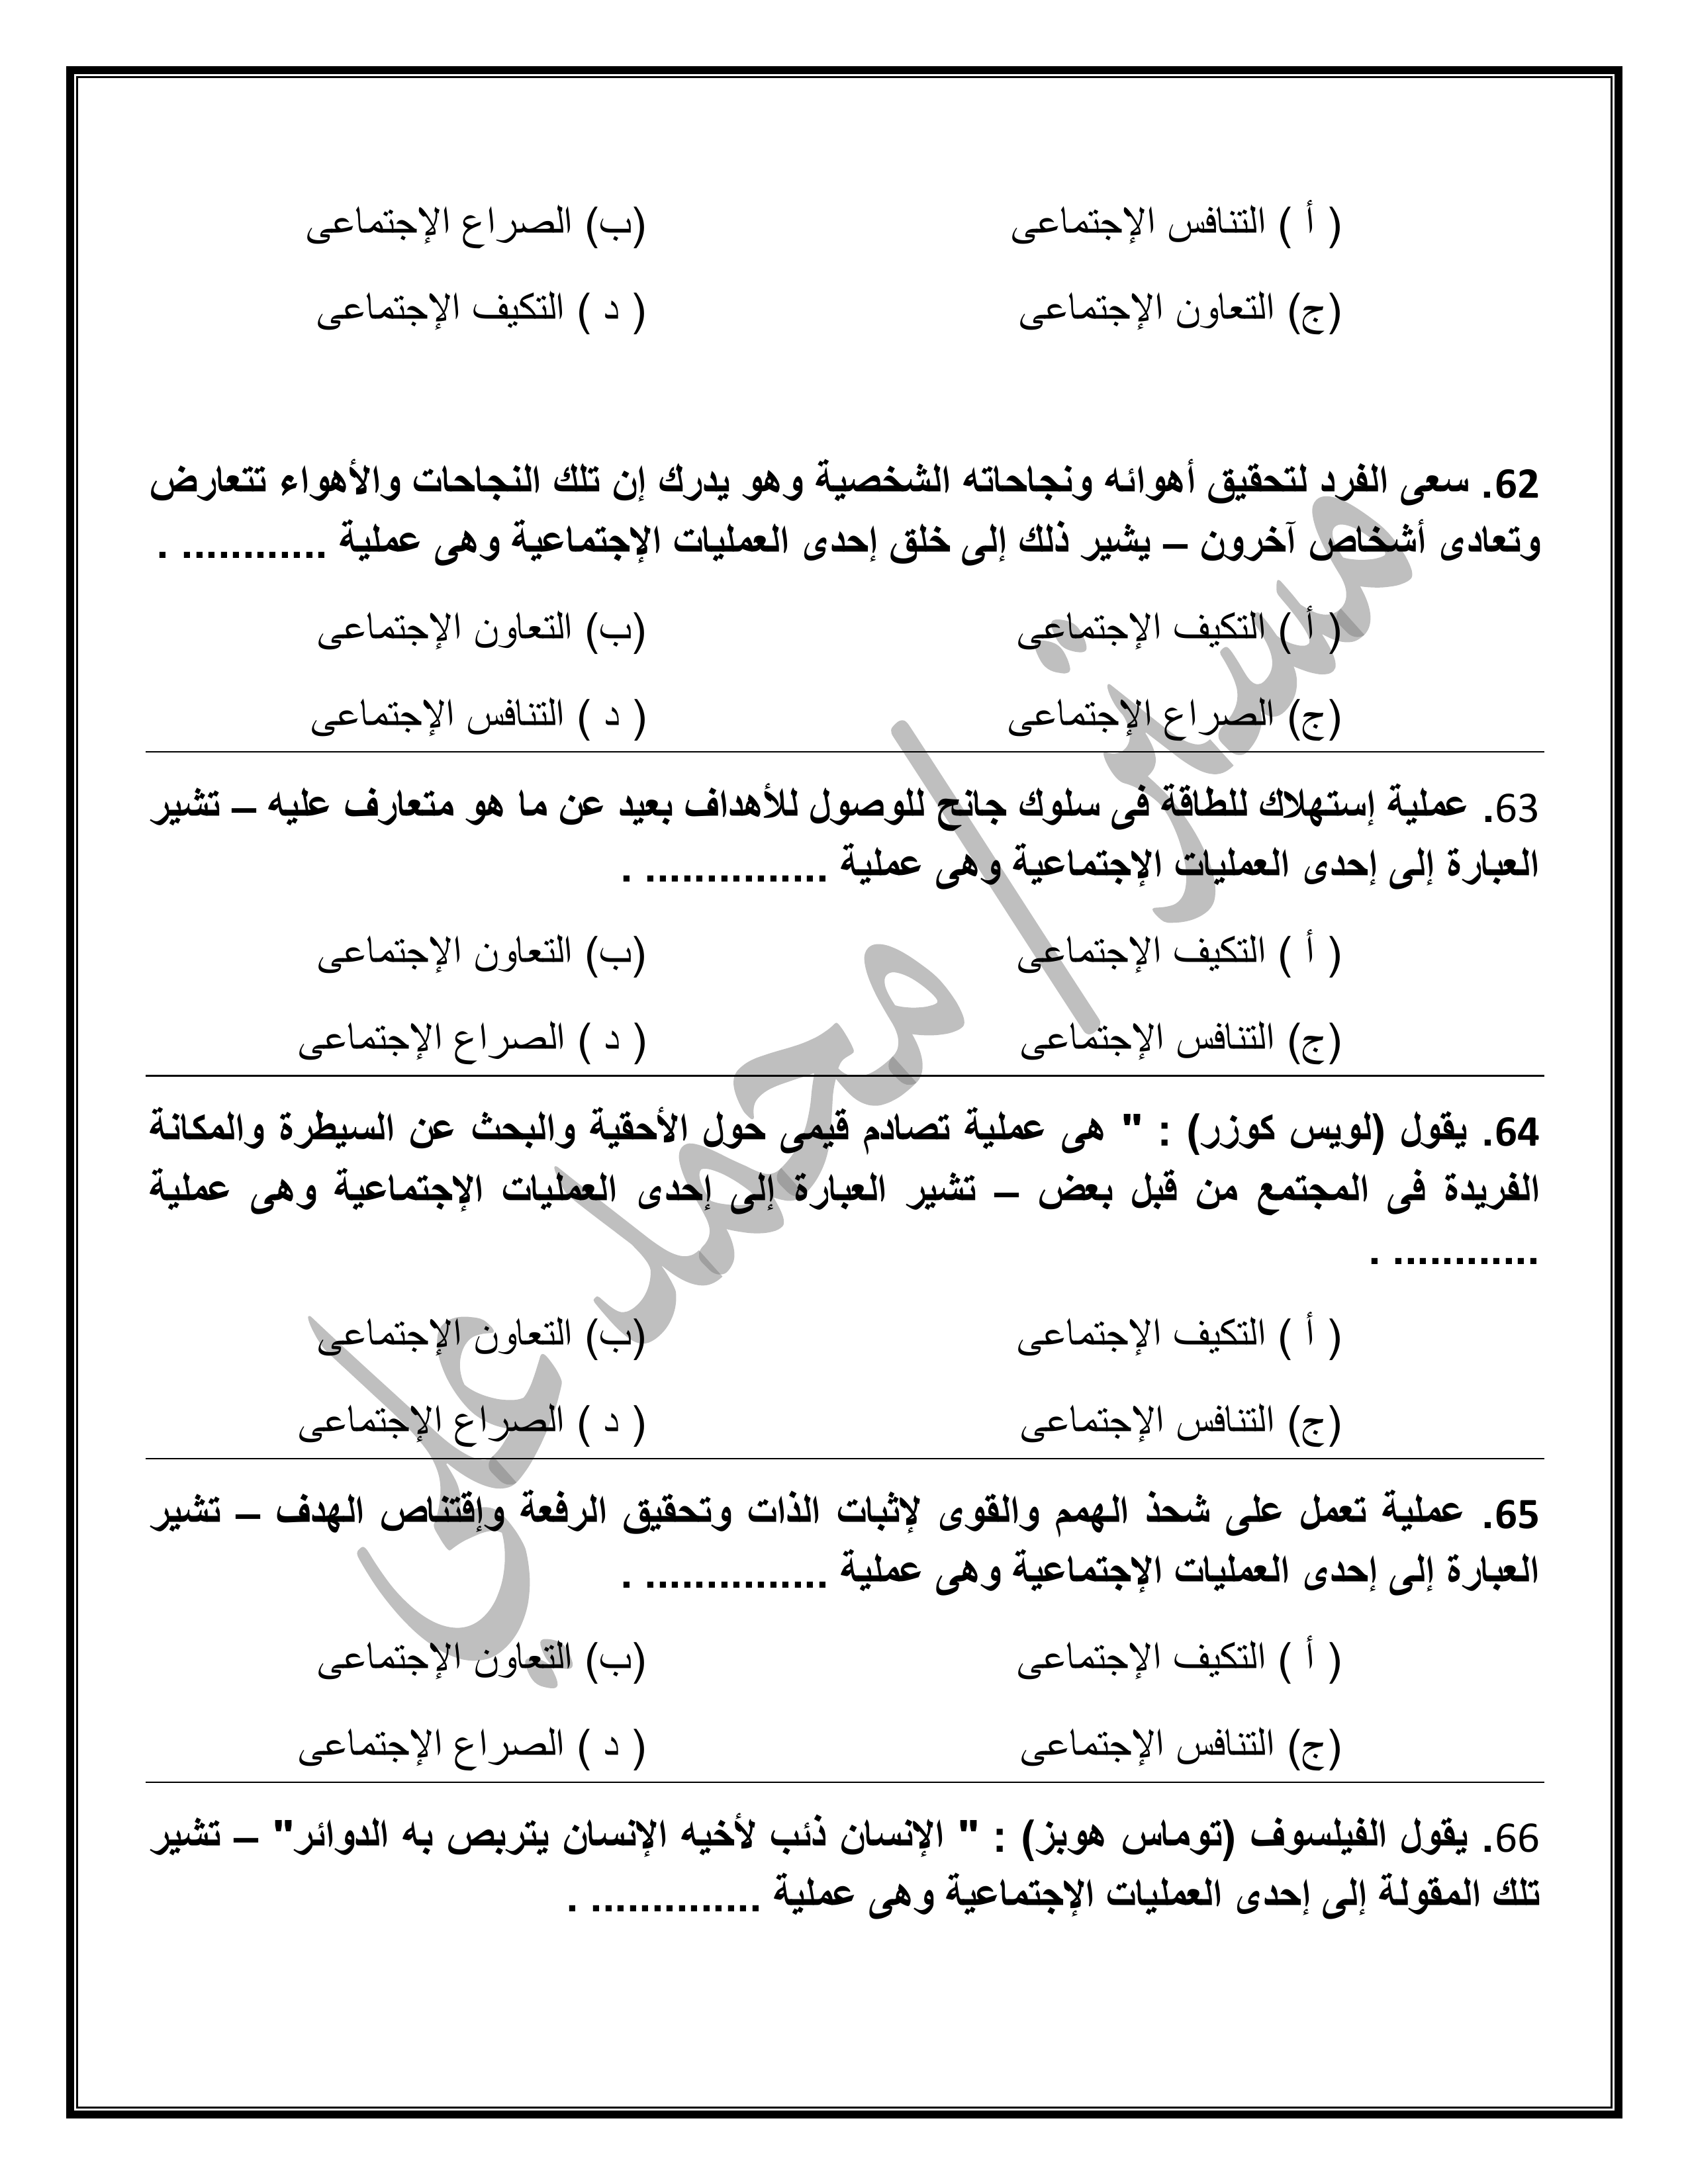 ( أ ) التنافس الإجتماعى (ب) الصراع الإجتماعى
(ج) التعاون الإجتماعى ( د ) التكيف الإجتماعى
62. سعى الفرد لتحقيق أهوائه ونجاحاته الشخصية وهو يدرك إن تلك النجاحات والأهواء تتعارض
وتعادى أشخاص آخرون – يشير ذلك إلى خلق إحدى العمليات الإجتماعية وهى عملية ............ .
( أ ) التكيف الإجتماعى (ب) التعاون الإجتماعى
(ج) الصراع الإجتماعى ( د ) التنافس الإجتماعى
63. عملية إستهلاك للطاقة فى سلوك جانح للوصول للأهداف بعيد عن ما هو متعارف عليه – تشير
العبارة إلى إحدى العمليات الإجتماعية وهى عملية ............... .
( أ ) التكيف الإجتماعى (ب) التعاون الإجتماعى
(ج) التنافس الإجتماعى ( د ) الصراع الإجتماعى
64. يقول (لويس كوزر) : " هى عملية تصادم قيمى حول الأحقية والبحث عن السيطرة والمكانة
الفريدة فى المجتمع من قبل بعض – تشير العبارة إلى إحدى العمليات الإجتماعية وهى عملية
............ .
( أ ) التكيف الإجتماعى (ب) التعاون الإجتماعى
(ج) التنافس الإجتماعى ( د ) الصراع الإجتماعى
65. عملية تعمل على شحذ الهمم والقوى لإثبات الذات وتحقيق الرفعة وإقتناص الهدف – تشير
العبارة إلى إحدى العمليات الإجتماعية وهى عملية ............... .
( أ ) التكيف الإجتماعى (ب) التعاون الإجتماعى
(ج) التنافس الإجتماعى ( د ) الصراع الإجتماعى
66. يقول الفيلسوف (توماس هوبز) : " الإنسان ذئب لأخيه الإنسان يتربص به الدوائر" – تشير
تلك المقولة إلى إحدى العمليات الإجتماعية وهى عملية .............. .
مستر / محمد علي